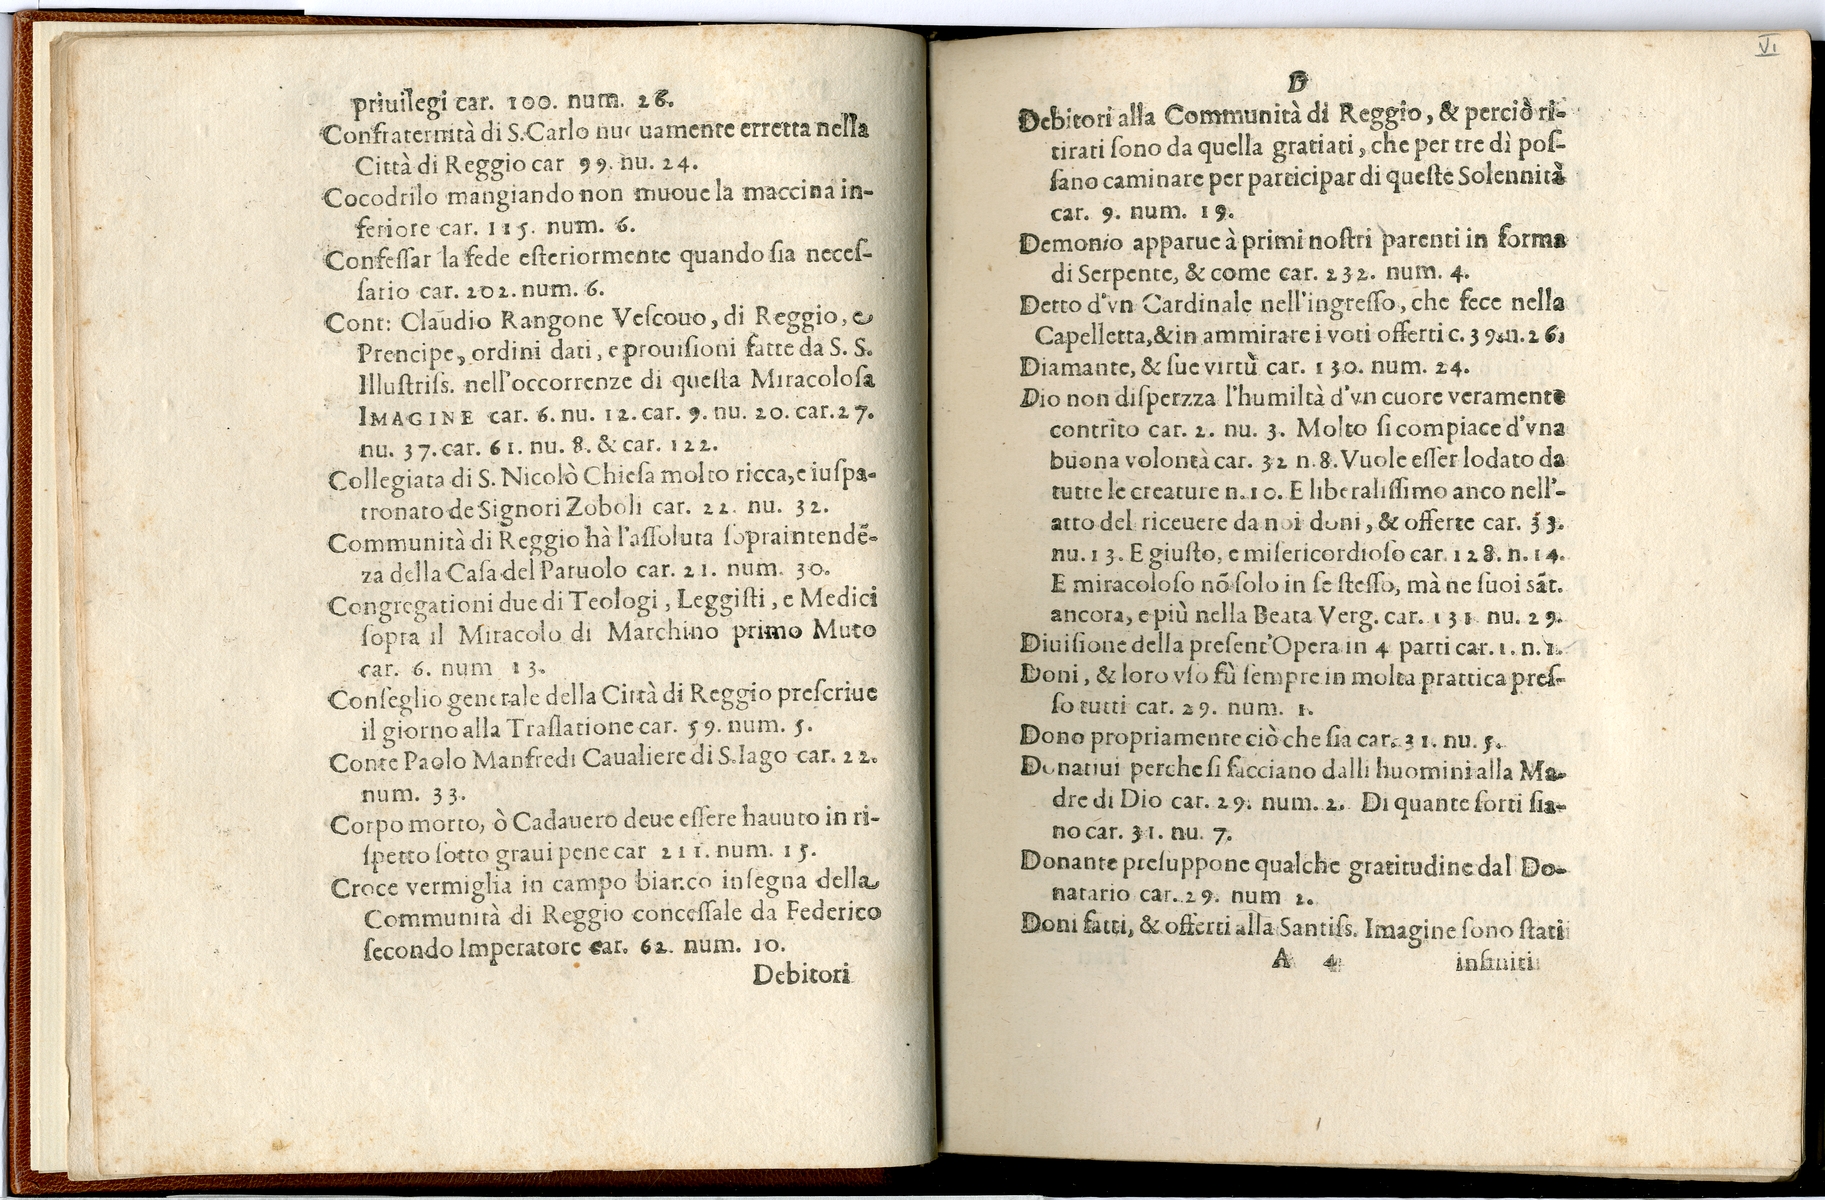 priuilegi car. 100. num. 26.
Confraternità di S. Carlo nuouamente erretta nella
Città di Reggio car 99. nu. 24.
Cocodrilo mangiando non muoue la maccina in-
feriore car. 115. num. 6.
Confeſſar la fede eſteriormente quando ſia neceſ-
ſario car. 202. num. 6.
Cont: Claudio Rangone Veſcouo, di Reggio, e
Prencipe, ordini dati, e prouiſioni fatte da S. S.
Illuſtriſs. nell'occorrenze di queſta Miracoloſa
IMAGINE car. 6. nu. 12. car. 9. nu. 20. car. 27.
nu. 37. car. 61. nu. 8. & car. 122.
Collegiata di S. Nicolò Chieſa molto ricca, e iuſpa-
tronato de Signori Zoboli car. 22. nu. 32.
Communità di Reggio hà l'aſſoluta ſopraintendē-
za della Caſa del Paruolo car. 21. num. 30.
Congregationi due di Teologi, Leggiſti, e Medici
ſopra il Miracolo di Marchino primo Muto
car. 6. num 13.
Conſeglio generale della Città di Reggio preſcriue
il giorno alla Traſlatione car. 59. num. 5.
Conte Paolo Manfredi Caualiere di S. Iago car. 22.
num. 33.
Corpo morto, ò Cadauero deue eſſere hauuto in ri-
ſpetto ſotto graui pene car 211. num. 15.
Croce vermiglia in campo bianco inſegna della
Communità di Reggio conceſſale da Federico
ſecondo Imperatore car. 62. num. 10.
Debitori
VI
D
Debitori alla Communità di Reggio, & perciò ri-
tirati ſono da quella gratiati, che per tre dì poſ-
ſano caminare per participar di queſte Solennità
car. 9. num. 19.
Demonio apparue à primi noſtri parenti in forma
di Serpente, & come car. 232. num. 4.
Detto d'vn Cardinale nell'ingreſſo, che fece nella
Capelletta, & in ammirare i voti offerti c. 39. n. 26.
Diamante, & ſue virtù car. 130. num. 24.
Dio non diſperzza l'humiltà d'vn cuore veramente
contrito car. 2. nu. 3. Molto ſi compiace d'vna
buona volontà car. 32 n. 8. Vuole eſſer lodato da
tutte le creature n. 10. E liberaliſſimo anco nell'-
atto del riceuere da noi doni, & offerte car. 33.
nu. 13. E giuſto, e miſericordioſo car. 128. n. 14.
E miracoloſo nō ſolo in ſe ſteſſo, mà ne ſuoi sāt.
ancora, e più nella Beata Verg. car. 131 nu. 29.
Diuiſione della preſent'Opera in 4 parti car. 1. n. 1.
Doni, & loro vſo fù ſempre in molta prattica preſ-
ſo tutti car. 29. num. 1.
Dono propriamente ciò che ſia car. 31. nu. 5.
Donatiui perche ſi facciano dalli huomini alla Ma-
dre di Dio car. 29. num. 2. Di quante ſorti ſia-
no car. 31. nu. 7.
Donante preſuppone qualche gratitudine dal Do-
natario car. 29. num 2.
Doni fatti, & offerti alla Santiſs. Imagine ſono ſtati
A 4 infiniti